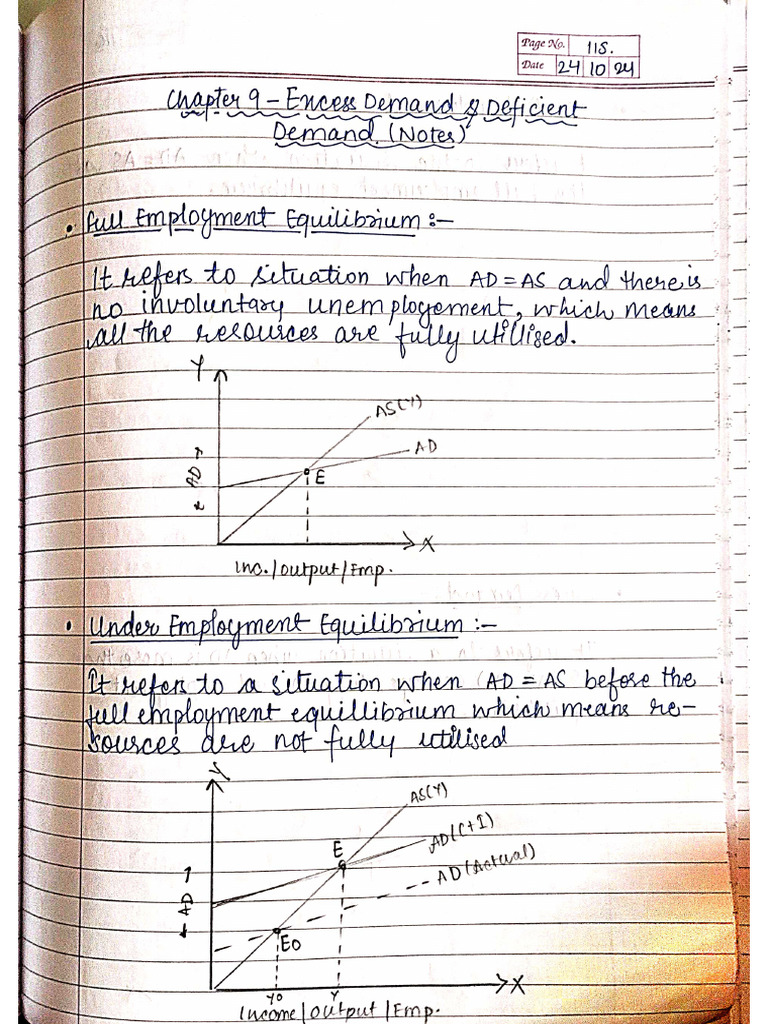 Page No. 115.
Date 24 10 24
Chapter 9 - Excess Demand & Deficient
Demand. (Notes)
• Full Employment Equilibrium :-
It refers to situation when AD = AS and there is
no involuntary unemplogement, which means
all the resources are fully utilised.
Y
AS(Y)
AD
AD
E
X
Inc./output/Emp.
• Under Employment Equilibrium :-
It refers to a situation when (AD = AS before the
full employment equillibrium which means re-
sources are not fully utilised
Y
AS(Y)
AD(C+I)
E
AD(Actual)
AD
E0
X
Y0 Y
Income/output/Emp.